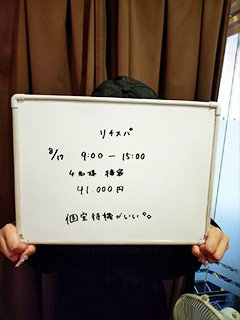 リチスパ
8/17 9:00 — 15:00
4名様 接客
41.000円
個室待機がいい°。